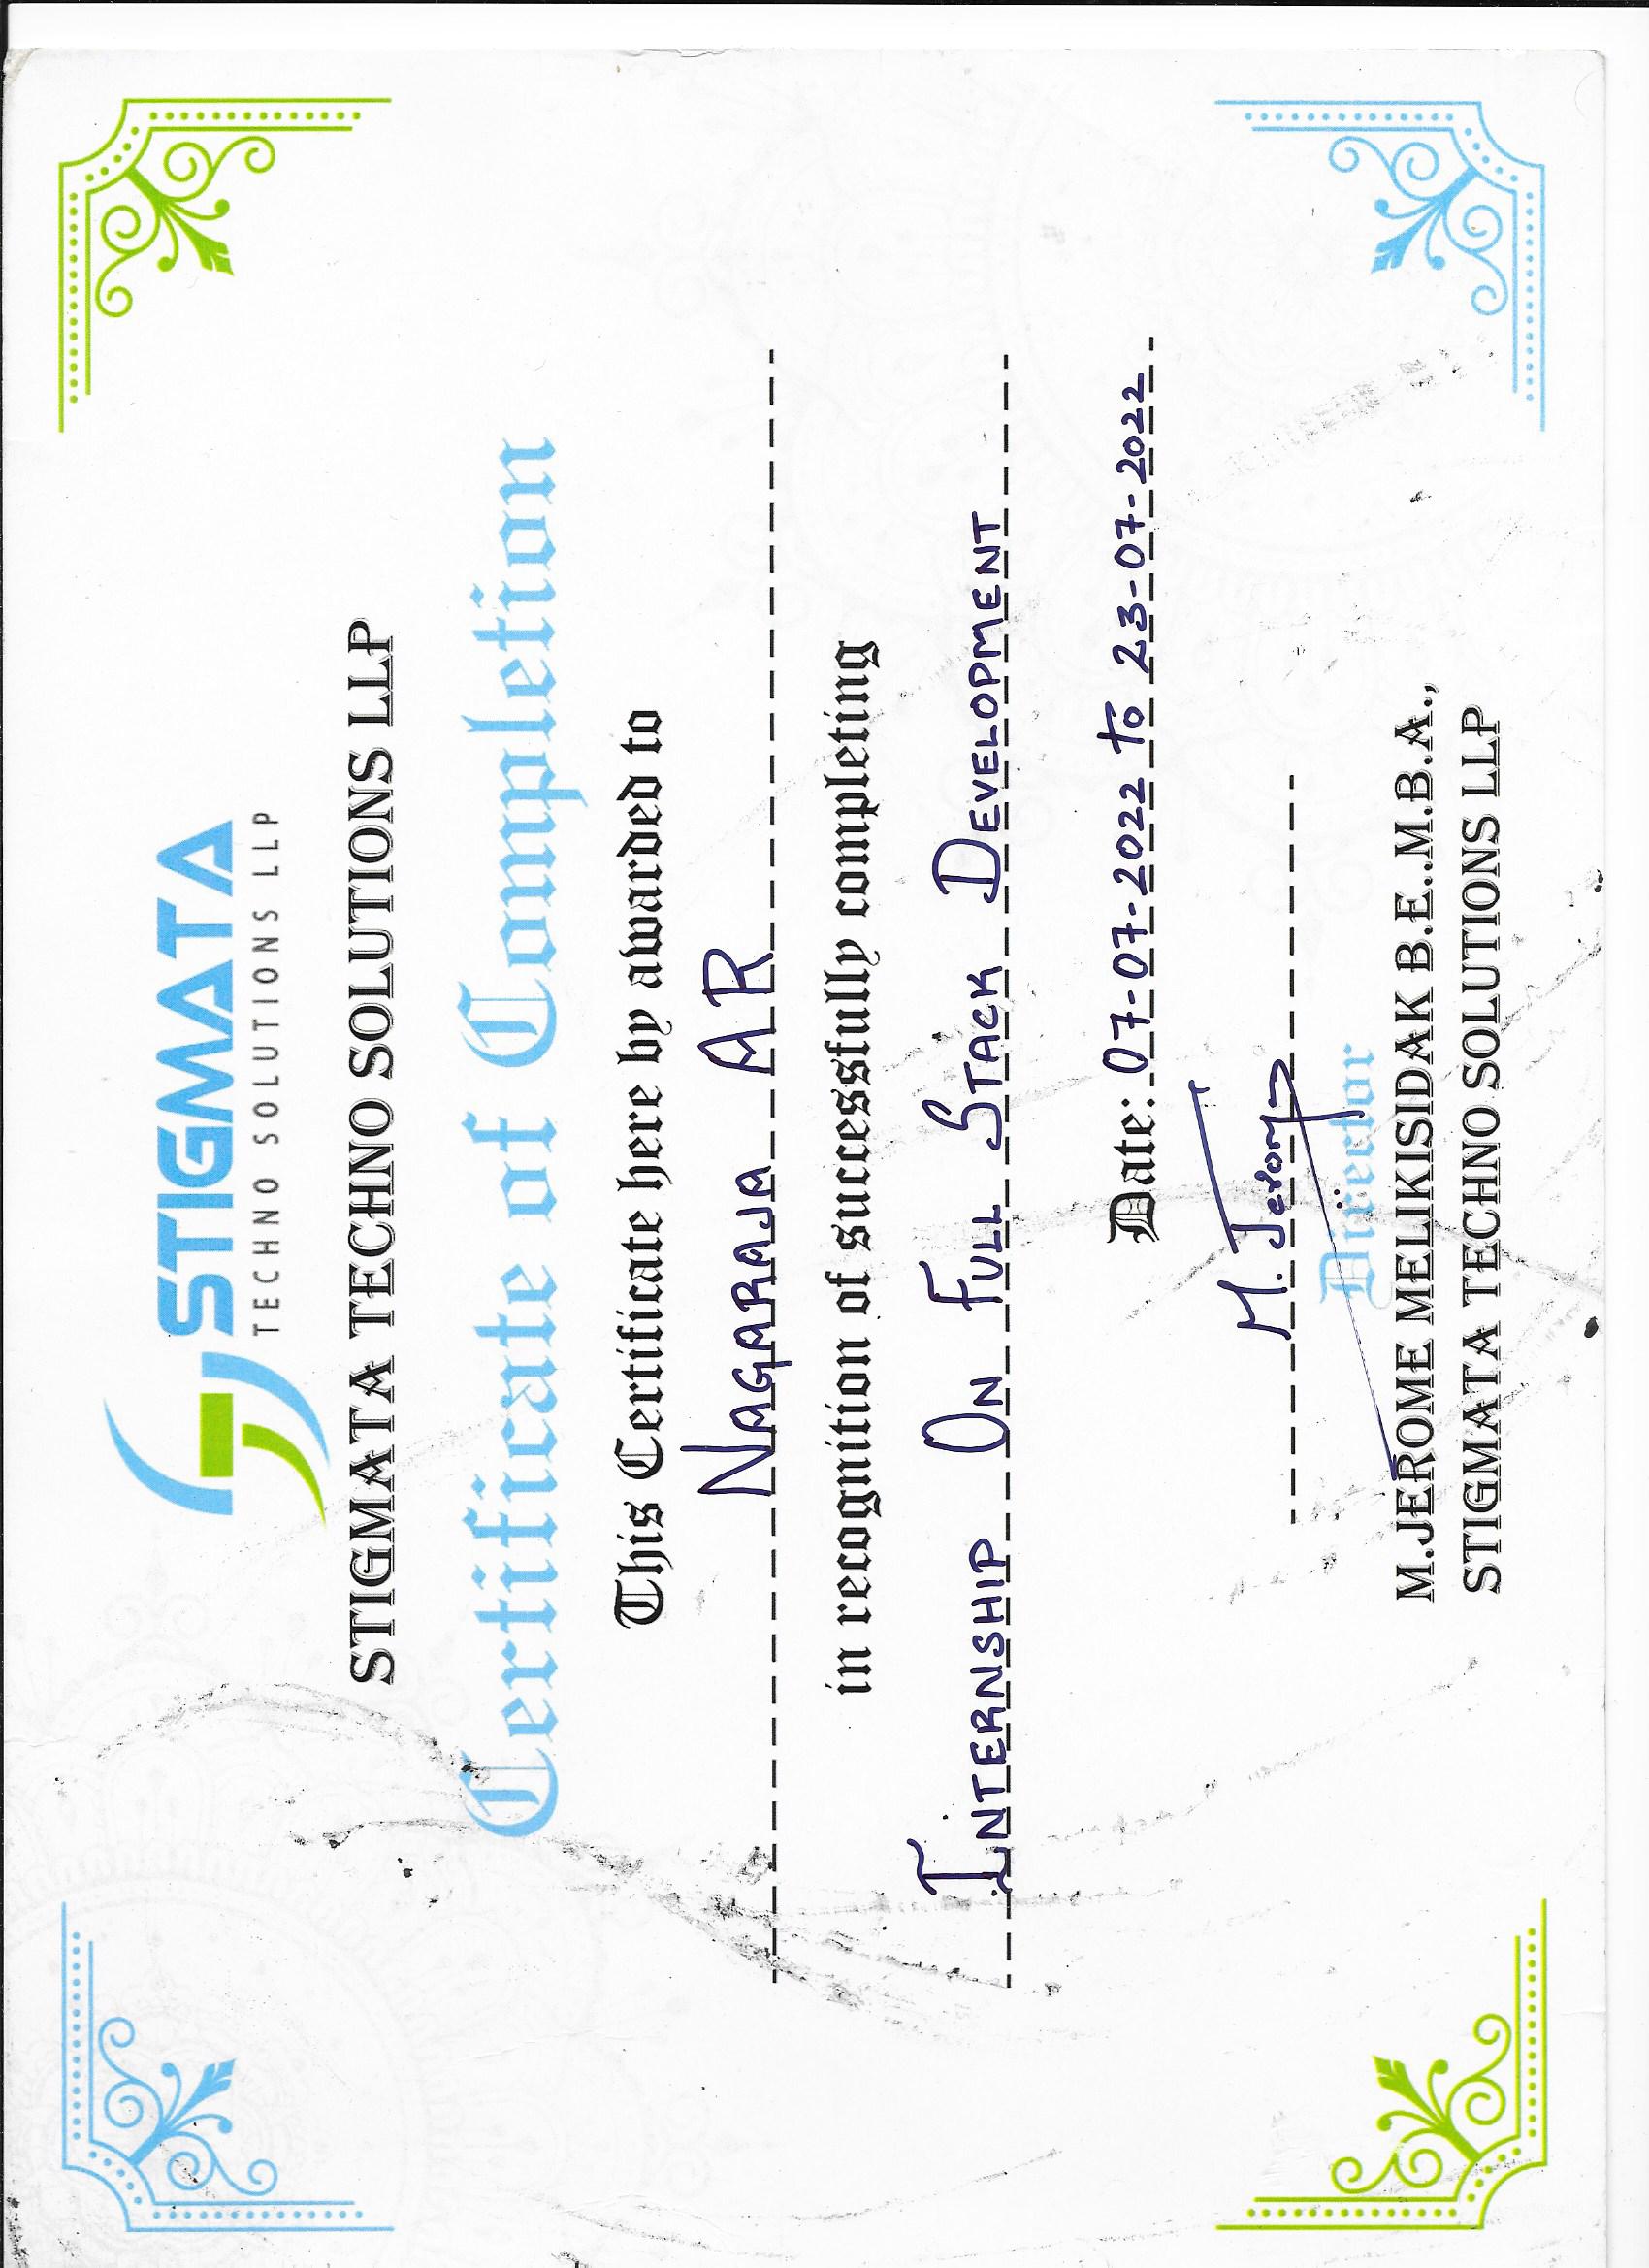 STIGMATA
TECHNO SOLUTIONS LLP
STIGMATA TECHNO SOLUTIONS LLP
Certificate of Completion
This Certificate here by awarded to
NAGARAJA AR
in recognition of successfully completing
INTERNSHIP ON FULL STACK DEVELOPMENT
Date: 07-07-2022 to 23-07-2022
M. Jerome
Director
M.JEROME MELIKISIDAK B.E..M.B.A.,
STIGMATA TECHNO SOLUTIONS LLP